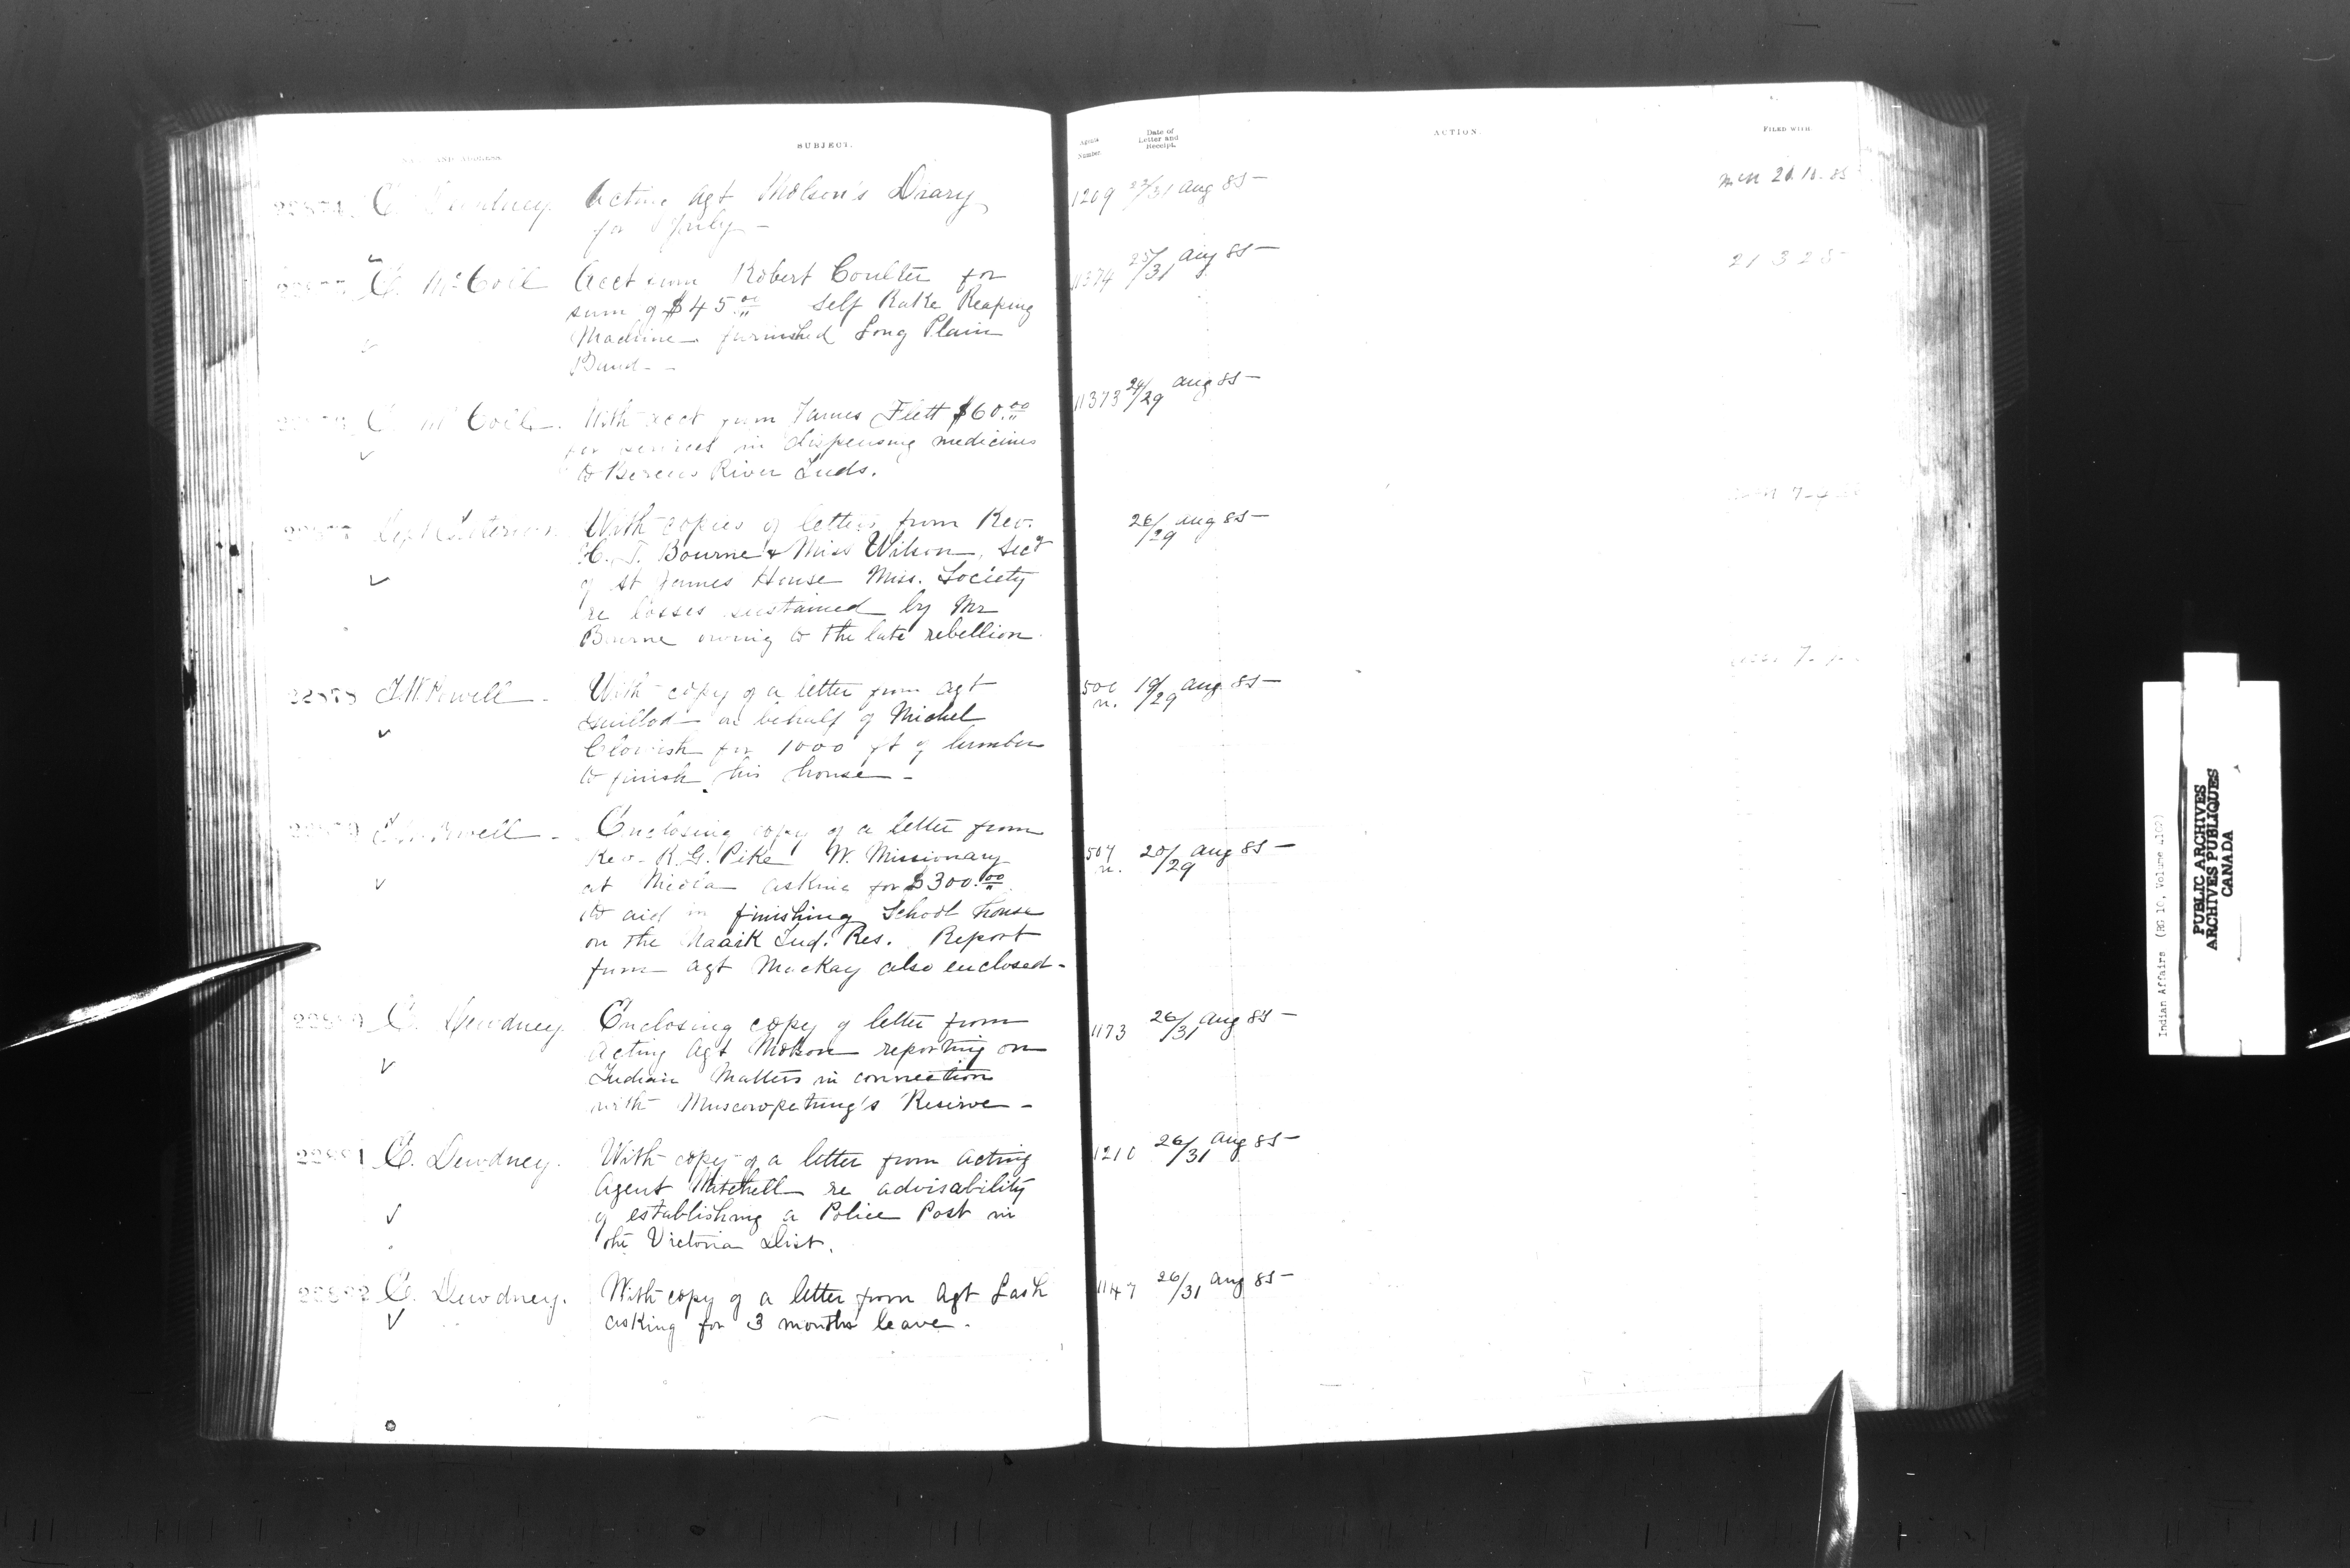 AND ADDRESS
SUBJECT.
Agents Number
Date of Letter and Receipt.
ACTION.
FILED WITH
22874 E. Dewdney. Acting Agt Molson's Diary
for July —
1209 22/31 Aug 85 —
E. McColl Acct from Robert Coulter for
sum of $45.00 Self Rake Reaping
Machine furnished Long Plain
Band —
11374 25/31 Aug 85 —
21325
E. McColl. With acct from James Flett $60.00
for services in dispensing medicines
to Berens River Inds.
11373 24/29 Aug 85 —
Dept Interior. With copies of letters from Rev.
H. T. Bourne & Miss Wilson, Secy
of St James House Miss. Society
re losses sustained by Mr
Bourne owing to the late rebellion.
26/29 Aug 85 —
22878 I.W. Powell — With copy of a letter from Agt
Guillod on behalf of Michel
for 1000 ft of lumber
to finish his house —
500 n. 19/29 Aug 85 —
22879 I.W. Powell — Enclosing copy of a letter from
Rev. R.G. Pike W. Missionary
at Nicola asking for $300.00
to aid in finishing School house
on the Naaik Ind. Res. Report
from Agt MacKay also enclosed —
507 n. 20/29 Aug 85 —
E. Dewdney. Enclosing copy of letter from
Acting Agt Molson reporting on
Indian Matters in connection
with Muscowpetung's Reserve —
1173 26/31 Aug 85 —
22881 E. Dewdney. With copy of a letter from Acting
Agent Mitchell re advisability
of establishing a Police Post in
the Victoria Dist.
1210 26/31 Aug 85 —
22882 E. Dewdney. With copy of a letter from Agt Lash
asking for 3 months leave.
1147 26/31 Aug 85 —
Indian Affairs (RG 10, Volume
PUBLIC ARCHIVES
ARCHIVES PUBLIQUES
CANADA